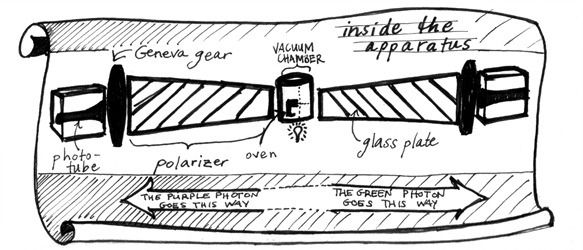 inside the
apparatus
Geneva gear
VACUUM
CHAMBER
photo-
tube
polarizer
oven
glass plate
THE PURPLE PHOTON
GOES THIS WAY
THE GREEN PHOTON
GOES THIS WAY